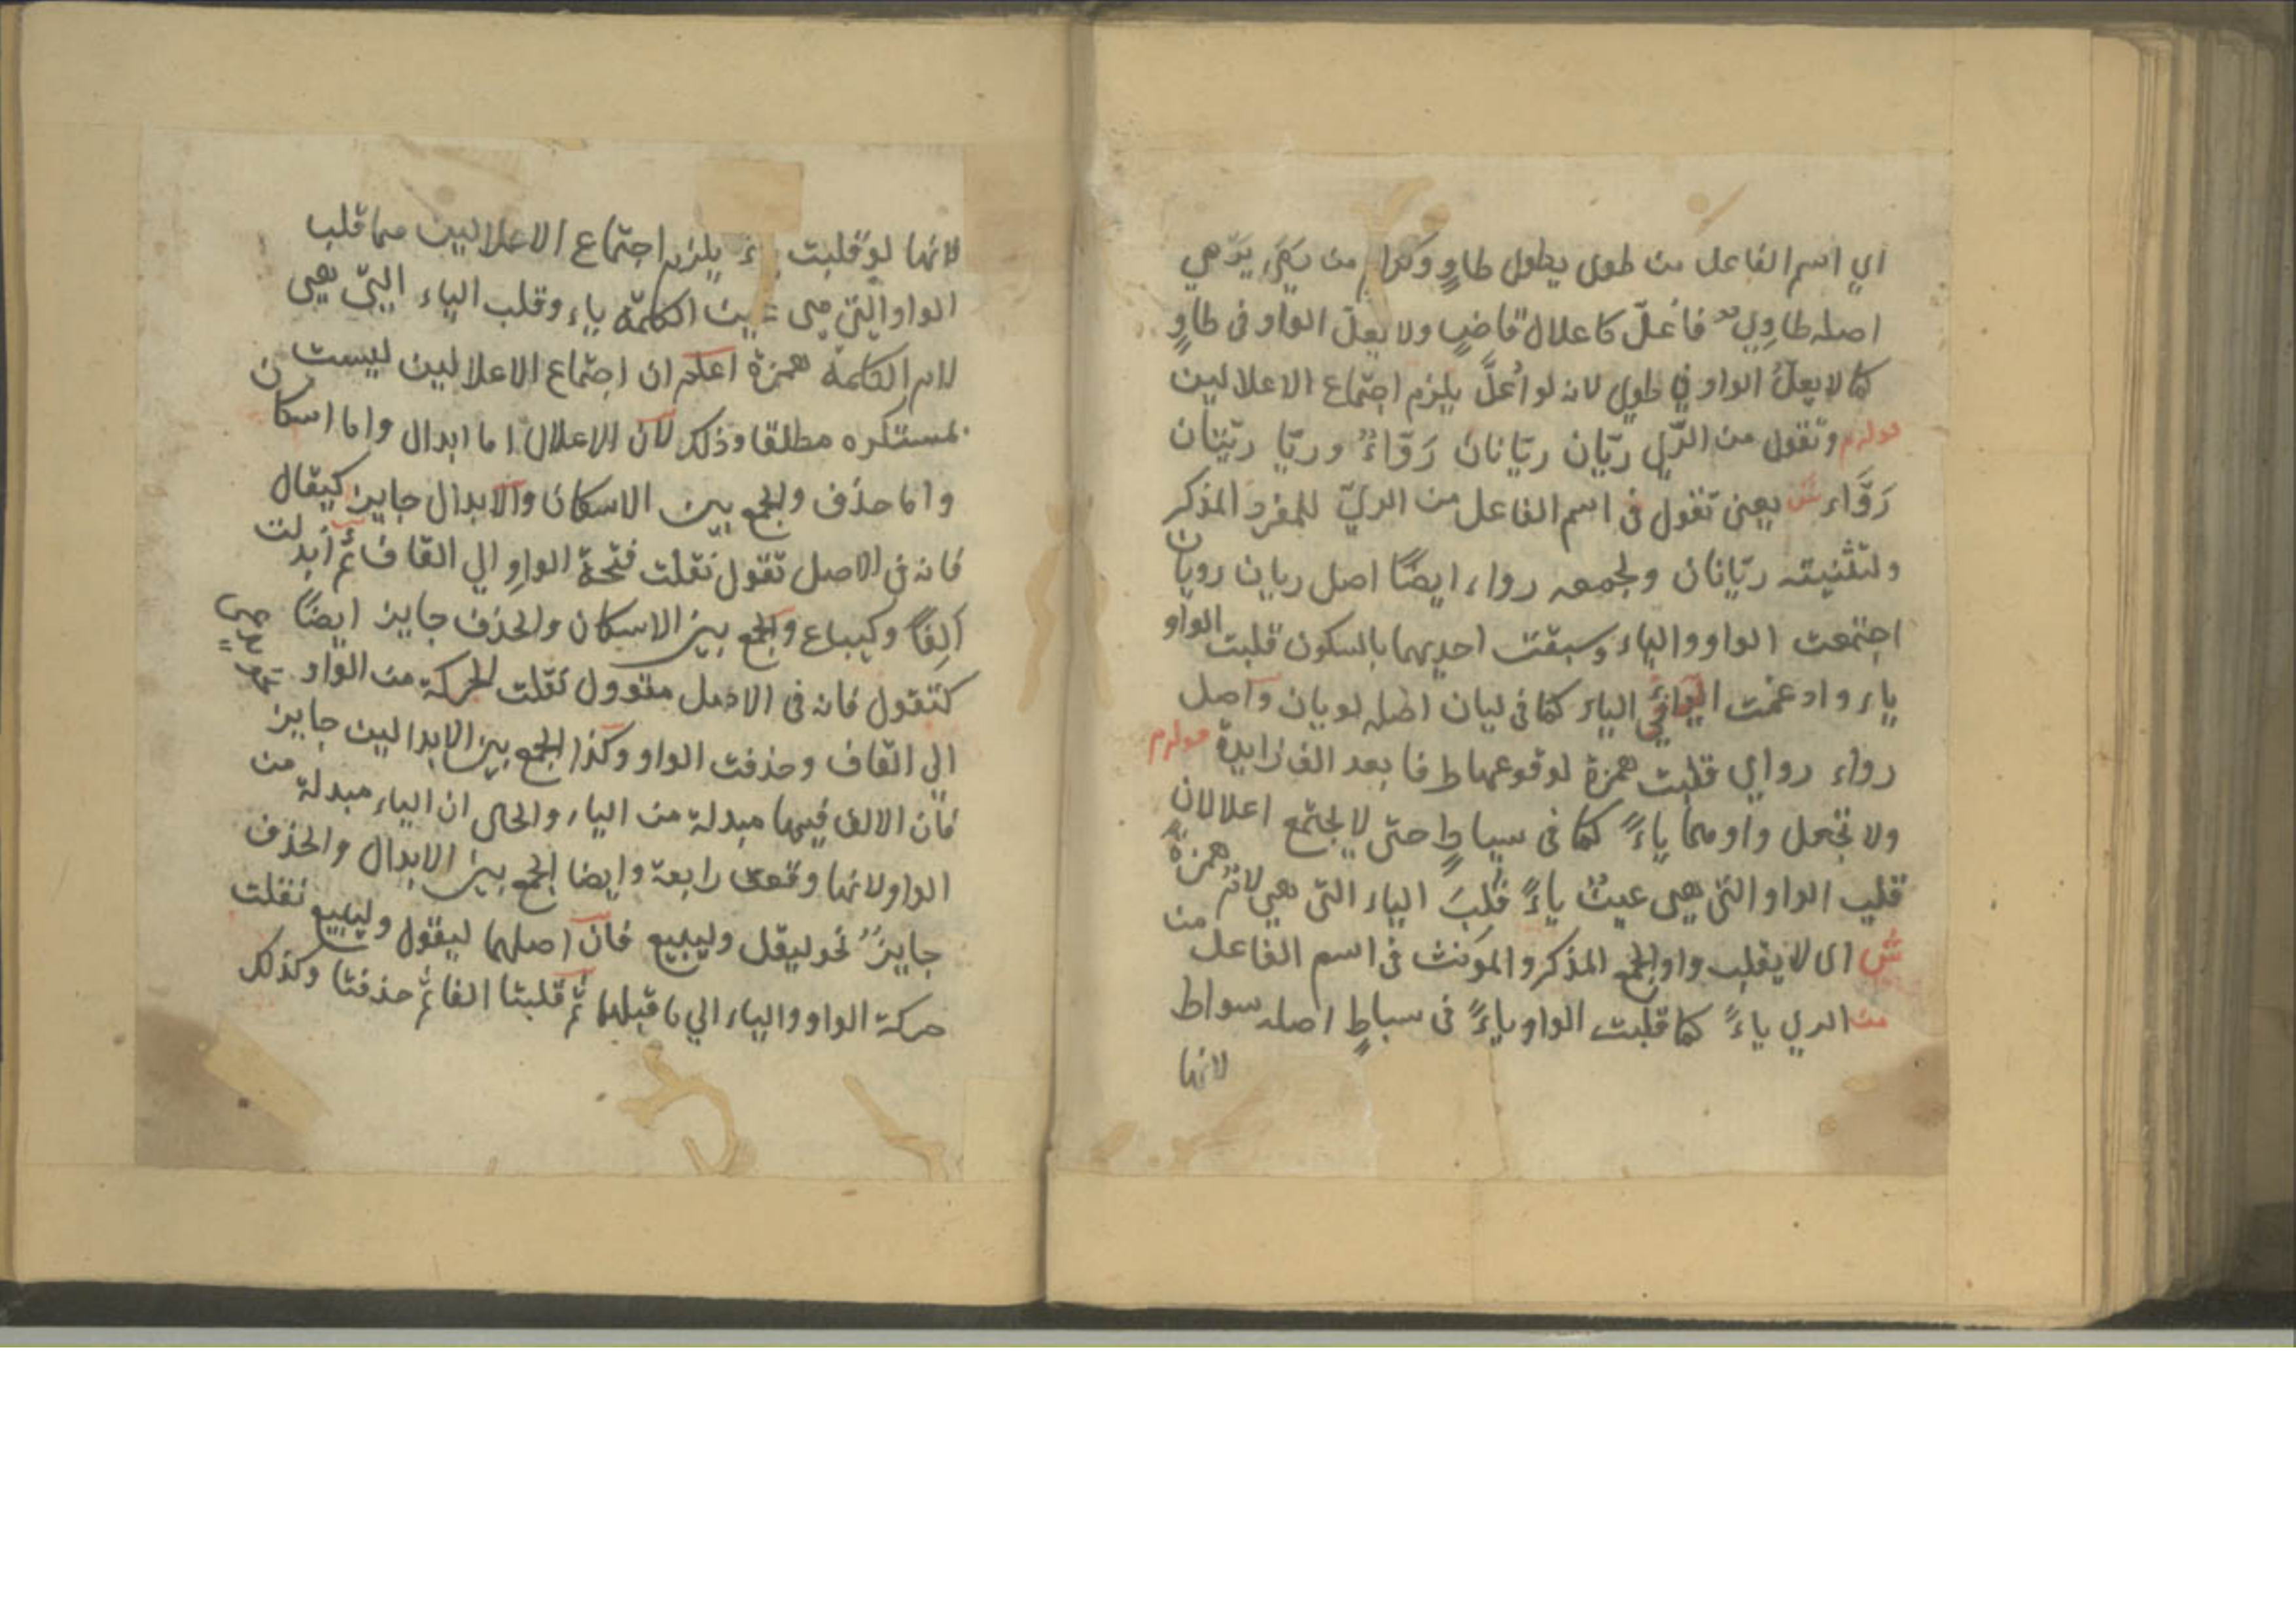 اي اسم الفاعل من طوى يطوى طاوٍ وكرام من
اصله طاوِي فاعلّ كاعلال قاضٍ ولا يعلّ الواو فى طاوٍ
كما لا يعلّ الواو في طوي لانه لو اُعلَّ يلزم اجتماع الاعلالين
وتقول من الرّي ريّان ريّانان رَوّاءٌ وريّا ريّتان
رَوَّاء ش يعنى تقول فى اسم الفاعل من الريّ للمفرد المذكر
ولتثنيته ريّانان ولجمعه رواء ايضًا اصل ريان رويان
اجتمعت الواو والياء وسبقت احديهما بالسكون قلبت الواو
ياء وادغمت الياء في الياء كما فى ليان اصله لويان واصل
رواء رواي قلبت همزة لوقوعها طرفا بعد الف زايدة
ولا تجعل واوهما ياءً كما فى سياطٍ حتى لا يجتمع اعلالان
قلب الواو التى هى عينٌ ياءً قلبَ الياء التى هي لام همزة
ش اى لا يقلب واو الجمع المذكر والمؤنث فى اسم الفاعل من
من الري ياءً كما قلبت الواو ياءً فى سباطٍ اصله سواط
لانها
لانها لو قلبت ياء يلزم اجتماع الاعلالين هما قلب
الواو التي هى عين الكلمة ياء وقلب الياء التى هى
لام الكلمة همزة اعلم ان اجتماع الاعلالين ليست
بمستكره مطلقا وذلك لان الاعلال اما ابدال واما اسكان
واما حذف والجمع بين الاسكان والابدال جايز كيقال
فانه فى الاصل تقول نقلت فتحة الواو الي القاف ثم أبدلت
ألِفًا وكيباع والجمع بين الاسكان والحذف جايز ايضًا
كتقول فانه فى الاصل متقوول نقلت الحركة من الواو
الي القاف وحذفت الواو وكذا الجمع بين الابدالين جايز
فان الالف فيها مبدلة من الياء والحال ان الياء مبدلة من
الواو لانها وقعت رابعة وايضا الجمع بين الابدال والحذف
جايزٌ نحو ليقل وليبيع فان اصلهما ليقول وليبيع نقلت
حركة الواو والياء الي ما قبلهما ثم قلبتا الفا ثم حذفتا وكذلك